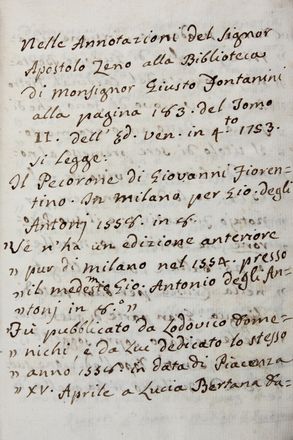 Nelle Annotazioni del Signor
Apostolo Zeno alla Biblioteca
di Monsignor Giusto Fontanini
alla pagina 183. del Tomo
II. dell' Ed. Ven. in 4.to 1753.
si legge:
Il Pecorone di Giovanni Fioren-
tino. In Milano per Gio. degli
Antonj 1558. in 8.
Ve n'ha un edizione anteriore
" pur di Milano nel 1554. presso
" il medesmo Gio. Antonio degli An-
" tonj in 8.o "
Fù pubblicato da Lodovico Dome-
" nichi, e da lui dedicato lo stesso
" anno 1558. in data di Piacenza
" XV. Aprile a Lucia Bertana Da-